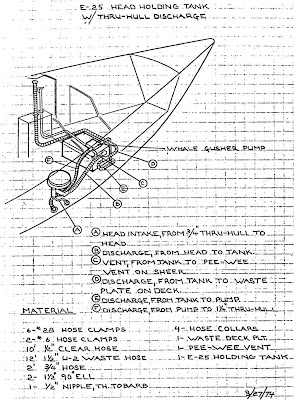 E-25 HEAD HOLDING TANK
W/ THRU-HULL DISCHARGE
WHALE GUSHER PUMP
Ⓐ HEAD INTAKE, FROM 3/4 THRU-HULL TO
HEAD.
Ⓑ DISCHARGE, FROM HEAD TO TANK.
Ⓒ VENT, FROM TANK TO PEE-WEE
VENT ON SHEER
Ⓓ DISCHARGE, FROM TANK TO WASTE
PLATE ON DECK.
Ⓔ DISCHARGE, FROM TANK TO PUMP.
DISCHARGE, FROM PUMP TO 1½ THRU-HULL
MATERIAL
6-#28 HOSE CLAMPS
2-#6 HOSE CLAMPS
10' ½" CLEAR HOSE
12' 1½" U-2 WASTE HOSE
2' 3/4" HOSE
2- 1½" 90° ELL
1- ½" NIPPLE, TH.TO BARB
4-HOSE COLLARS
1-WASTE DECK PLT.
1-PEE-WEE VENT
1-E-25 HOLDING TANK
3/27/74